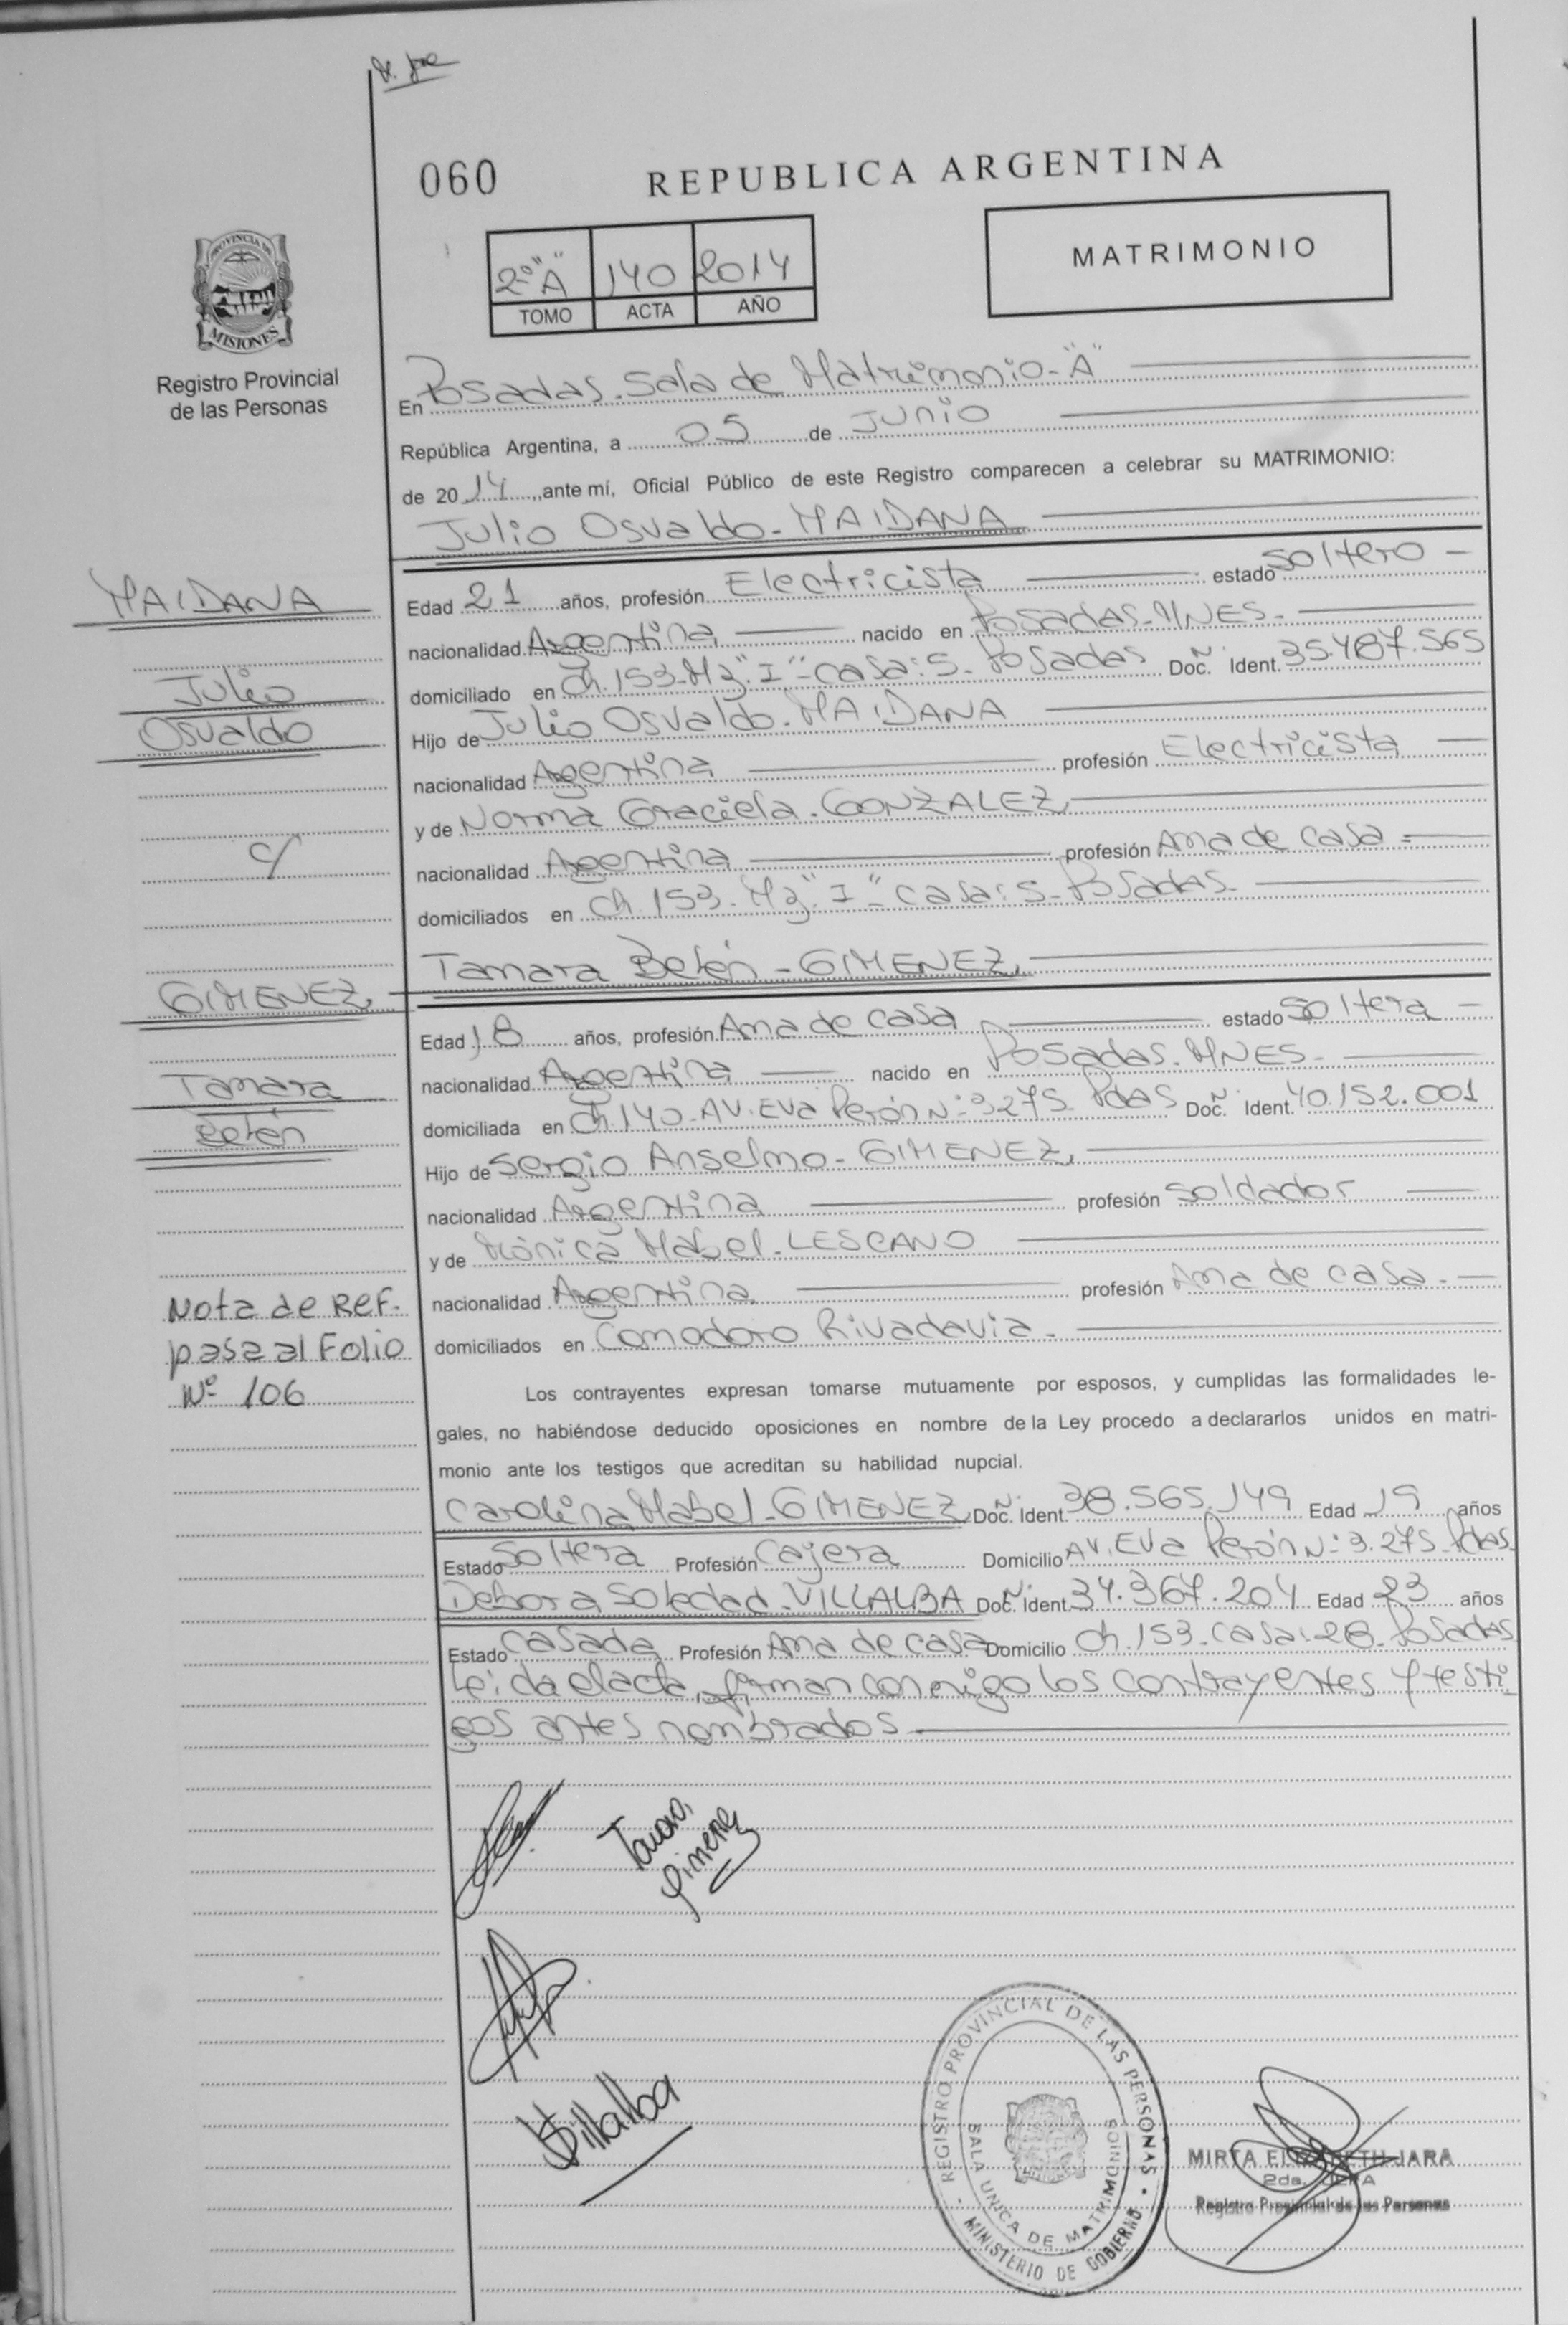 060
REPUBLICA ARGENTINA
2º "A" 140 2014
TOMO ACTA AÑO
MATRIMONIO
PROVINCIA DE
MISIONES
Registro Provincial
de las Personas
En Posadas. Sala de Matrimonio - "A"
República Argentina, a 05 de Junio
de 2014, ante mí, Oficial Público de este Registro comparecen a celebrar su MATRIMONIO:
Julio Osvaldo - MAIDANA
MAIDANA
Julio
Osvaldo
c/
GIMENEZ
Tamara
Belén
Nota de Ref.
pasa al Folio
Nº 106
Edad 21 años, profesión Electricista estado Soltero
nacionalidad Argentina nacido en Posadas - MNES -
domiciliado en Ch. 153 - Mz. "I" - Casa: 5 - Posadas Doc. Nº Ident. 35.487.565
Hijo de Julio Osvaldo - MAIDANA
nacionalidad Argentina profesión Electricista
y de Norma Graciela - GONZALEZ
nacionalidad Argentina profesión Ama de casa
domiciliados en Ch. 153 - Mz. "I" - Casa: 5 - Posadas -
Tamara Belén - GIMENEZ
Edad 18 años, profesión Ama de casa estado Soltera
nacionalidad Argentina nacido en Posadas - MNES -
domiciliada en Ch. 140 - AV. Eva Perón Nº 3275 - Pdas Doc. Nº Ident. 40.152.001
Hijo de Sergio Anselmo - GIMENEZ
nacionalidad Argentina profesión Soldador
y de Mónica Mabel - LESCANO
nacionalidad Argentina profesión Ama de casa -
domiciliados en Comodoro Rivadavia -
Los contrayentes expresan tomarse mutuamente por esposos, y cumplidas las formalidades le-
gales, no habiéndose deducido oposiciones en nombre de la Ley procedo a declararlos unidos en matri-
monio ante los testigos que acreditan su habilidad nupcial.
Carolina Mabel - GIMENEZ Doc. Nº Ident. 38.565.149 Edad 19 años
Estado Soltera Profesión Cajera Domicilio AV. Eva Perón Nº 3.275 - Pdas
Debora Soledad - VILLALBA Doc. Nº Ident. 34.367.204 Edad 23 años
Estado Casada Profesión Ama de casa Domicilio Ch. 153 - Casa: 28 - Posadas
Leída el acta, firman conmigo los contrayentes y testi-
gos antes nombrados
Tamara
Gimenez
Villalba
REGISTRO PROVINCIAL DE LAS PERSONAS
SALA UNICA DE MATRIMONIOS
MINISTERIO DE GOBIERNO
MIRTA ELIZABETH JARA
2da. JEFA
Registro Provincial de las Personas